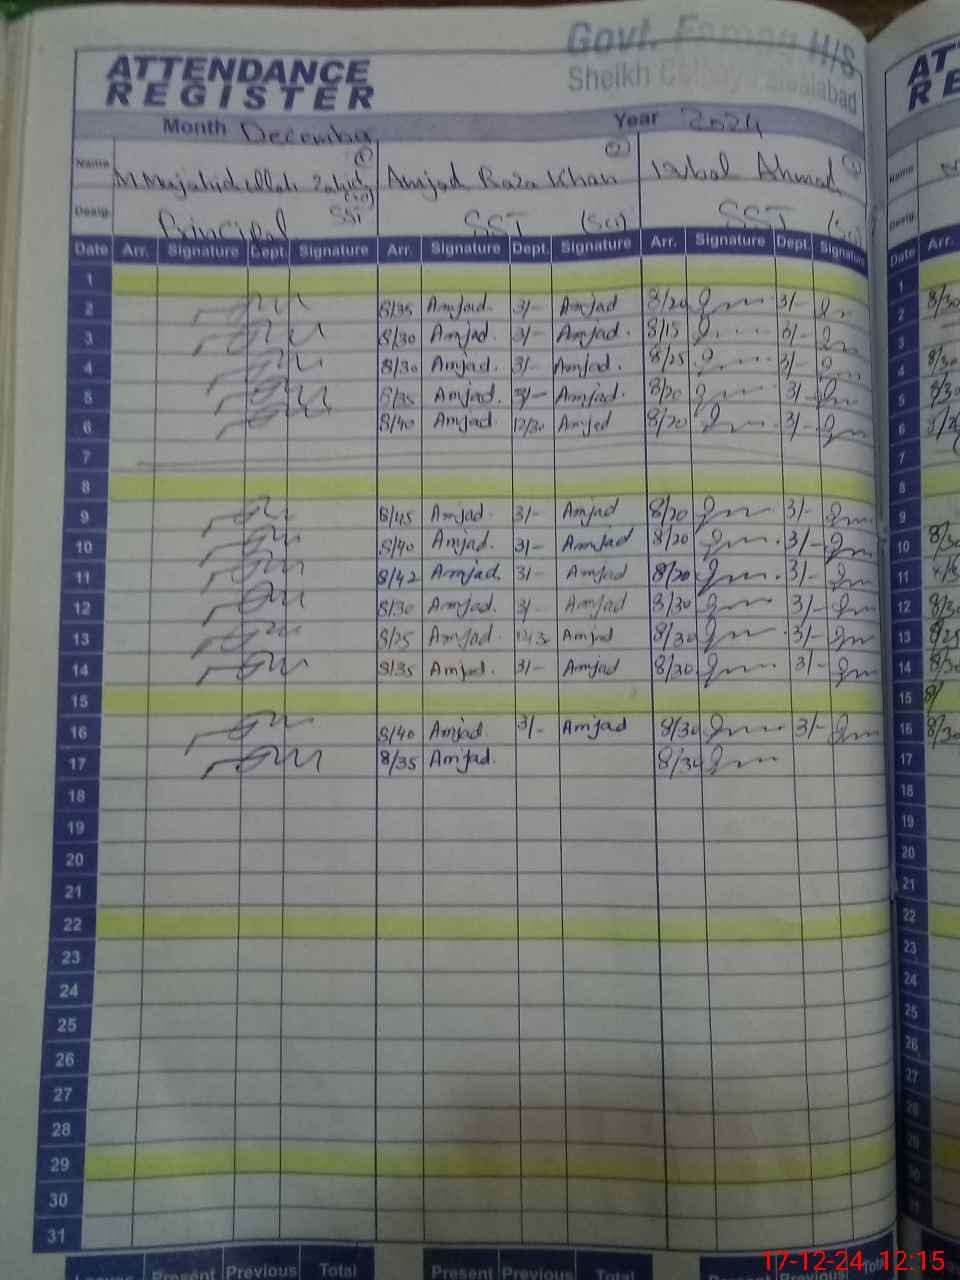 Govt. H/S
Sheikh Colony Faisalabad
ATTENDANCE
REGISTER
Month December Year 2024
Name M. Mujahidullah Zahid ① Amjad Raza Khan ② Iqbal Ahmad
Desig. Principal SST SST (Sci) SST
Date Arr. Signature Dept. Signature Arr. Signature Dept. Signature Arr. Signature Dept. Signature
1
2 8/35 Amjad. 3/- Amjad 8/20 3/-
3 8/30 Amjad. 3/- Amjad. 8/15 3/-
4 8/30 Amjad. 3/- Amjad. 8/25 3/-
5 8/35 Amjad. 3/- Amjad. 8/20 3/-
6 8/40 Amjad 12/30 Amjad 8/20 3/-
7
8
9 8/45 Amjad. 3/- Amjad 8/20 3/-
10 8/40 Amjad. 3/- Amjad 8/20 3/-
11 8/42 Amjad. 3/- Amjad 8/20 3/-
12 8/30 Amjad. 3/- Amjad 8/30 3/-
13 8/25 Amjad. 12/30 Amjad 8/30 3/-
14 8/35 Amjad. 3/- Amjad 8/30 3/-
15
16 8/40 Amjad. 3/- Amjad 8/30 3/-
17 8/35 Amjad. 8/30
18
19
20
21
22
23
24
25
26
27
28
29
30
31
Present Previous Total Present Previous Total Previous Total
AT
RE
Name
Desig.
Date Arr.
1
2 8/30
3
4 8/30
5
6
7
8
9
10 8/30
11
12 8/30
13 8/25
14 8/30
15 8/
16 8/30
17
18
19
20
21
22
23
24
25
26
27
28
29
30
31
17-12-24 12:15